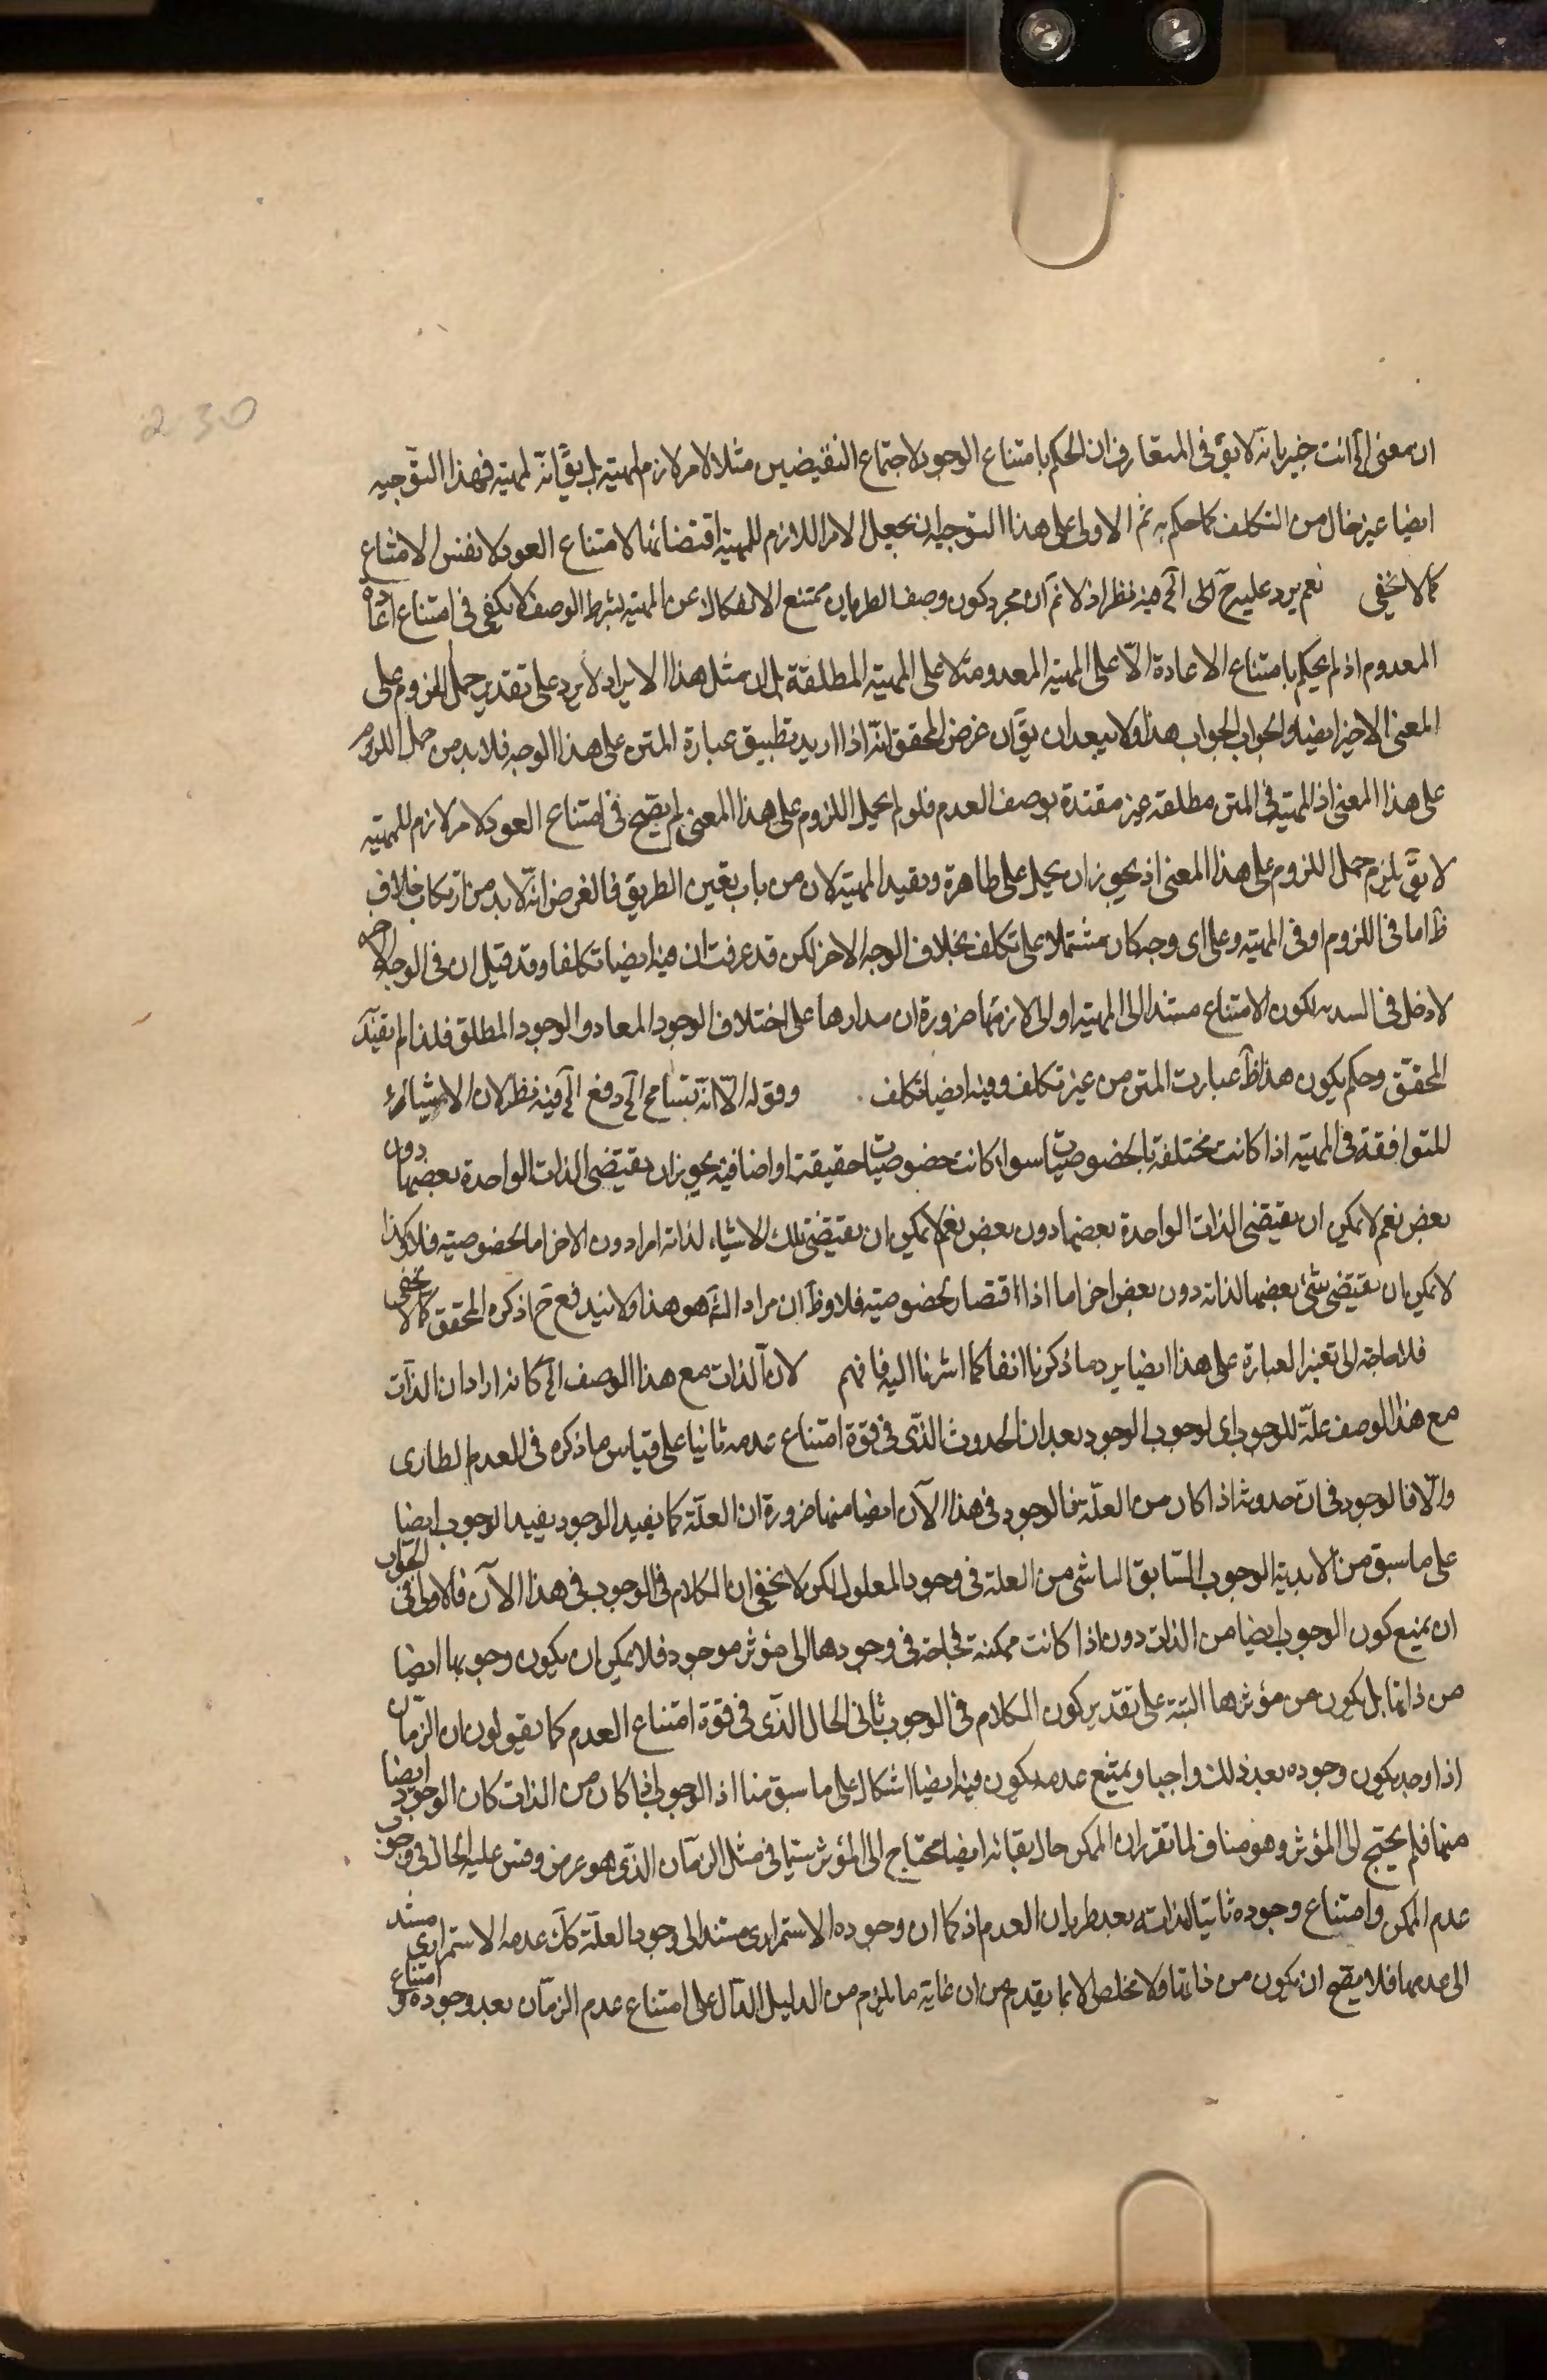 230
ان معنى الخ انت خبير بانه لا يق في المتعارف ان الحكم بامتناع الوجود لاجتماع النقيضين مثلا لامر لازم لمهيته بل يق انه لمهيته فهذا التوجيه
ايضا غير خال من التكلف كما حكم به ثم الاولى على هذا التوجيه ان يجعل الامر اللازم للمهية اقتضائها لامتناع العود لا نفس الامتناع
كما لا يخفى نعم يرد عليه ح الخ فيه نظر اذ لا نم ان مجرد كون وصف الطريان ممتنع الانفكاك عن المهية بشرط الوصف لا يكفي في امتناع اعادة
المعدوم اذ لم يحكم بامتناع الاعادة الا على المهية المعدومة لا على المهية المطلقة بل ان مثل هذا الايراد لا يرد على تقدير حمل اللزوم على
المعنى الاخير ايضا والجواب الجواب هذا ولا يبعد ان يق ان غرض المحقق انه اذا اريد تطبيق عبارة المتن على هذا الوجه فلا بد من حمل اللزوم
على هذا المعنى اذ المهية في المتن مطلقة غير مقيدة بوصف العدم فلو لم يحمل اللزوم على هذا المعنى لم يصح في امتناع العود لامر لازم للمهية
لا يق لم يلزم حمل اللزوم على هذا المعنى اذ يجوز ان يحمل على ظاهره ويقيد المهية لان من باب تعين الطريق فالغرض انه لا بد من ارتكاب خلاف
ظ اما في اللزوم او في المهية وعلى اى وجه كان مشتملا على تكلف بخلاف الوجه الاخر لكن قد عرفت ان فيه ايضا تكلفا وقد قيل ان في الوجه الاخير
لا دخل في السند لكون الامتناع مستندا الى المهية او الى لازمها ضرورة ان مدارها على اختلاف الوجود المعاد والوجود المطلق فلذا لم يقيد
المحقق وحكم بكون هذا ظ عبارت المتن من غير تكلف وفيه ايضا تكلف وقوله الا انه تسامح الخ دفع الخ فيه نظر لان الاشياء
المتوافقة في المهية اذا كانت مختلفة بالخصوصيات سواء كانت خصوصيات حقيقة او اضافية يجوز ان يقتضى الذات الواحدة بعضها دون
بعض نعم لا يمكن ان يقتضى الذات الواحدة بعضها دون بعض نعم لا يمكن ان يقتضى تلك الاشياء لذاته امرا دون الاخر اما لخصوصيته فلا وكذا
لا يمكن ان يقتضى شئ بعضها لذاته دون بعض اخر اما اذا اقتضاه لخصوصيته فلا وظ ان مراد الش هو هذا ولا يندفع ح اذكره المحقق كما لا يخفى
فلا حاجة الى تغير العبارة على هذا ايضا يرد ما ذكرنا انفا كما اشرنا اليه فافهم لان الذات مع هذا الوصف الخ كانه اراد ان الذات
مع هذا الوصف علة للوجوب اى لوجوب الوجود بعد ان الحدوث الذى في قوة امتناع عدمه ثانيا على قياس ما ذكره في العدم الطارى
والا فالوجود في ان حدوثه اذا كان من العلة فالوجود في هذا الآن ايضا منها ضرورة ان العلة كما يفيد الوجود يفيد الوجوب ايضا
على ما سبق من لابدية الوجوب السابق الناشى من العلة في وجود المعلول لكن لا يخفى ان الكلام في الوجوب في هذا الآن فالاولى في الجواب
ان يمنع كون الوجوب ايضا من الذات دون اذا كانت ممكنة محتاجة في وجودها الى مؤثر موجود فلا يمكن ان يكون وجوبها ايضا
من ذاتها بل يكون من مؤثرها البتة على تقدير كون الكلام في الوجوب ثانى الحال الذى في قوة امتناع العدم كما يقولون ان الزمان
اذا وجد يكون وجوده بعد ذلك واجبا ويمتنع عدمه يكون فيه ايضا اشكال على ما سبق منا اذ الوجوب اذا كان من الذات كان الوجود ايضا
منها فلم يحتج الى المؤثر وهو مناف لما تقرر ان الممكن حال بقائه ايضا محتاج الى المؤثر سيما في مثل الزمان الذى هو عرض وقس عليه الحال في وجوب
عدم الممكن وامتناع وجوده ثانيا لذاته بعد طريان العدم اذ كما ان وجوده الاستمرارى مستند الى وجود العلة كك عدمه الاستمرارى مستند
الى عدمها فلا يصح ان يكون من ذاتها ولا مخلص الا بما يقدم من ان غاية ما يلزم من الدليل الدال على امتناع عدم الزمان بعد وجوده هو امتناع